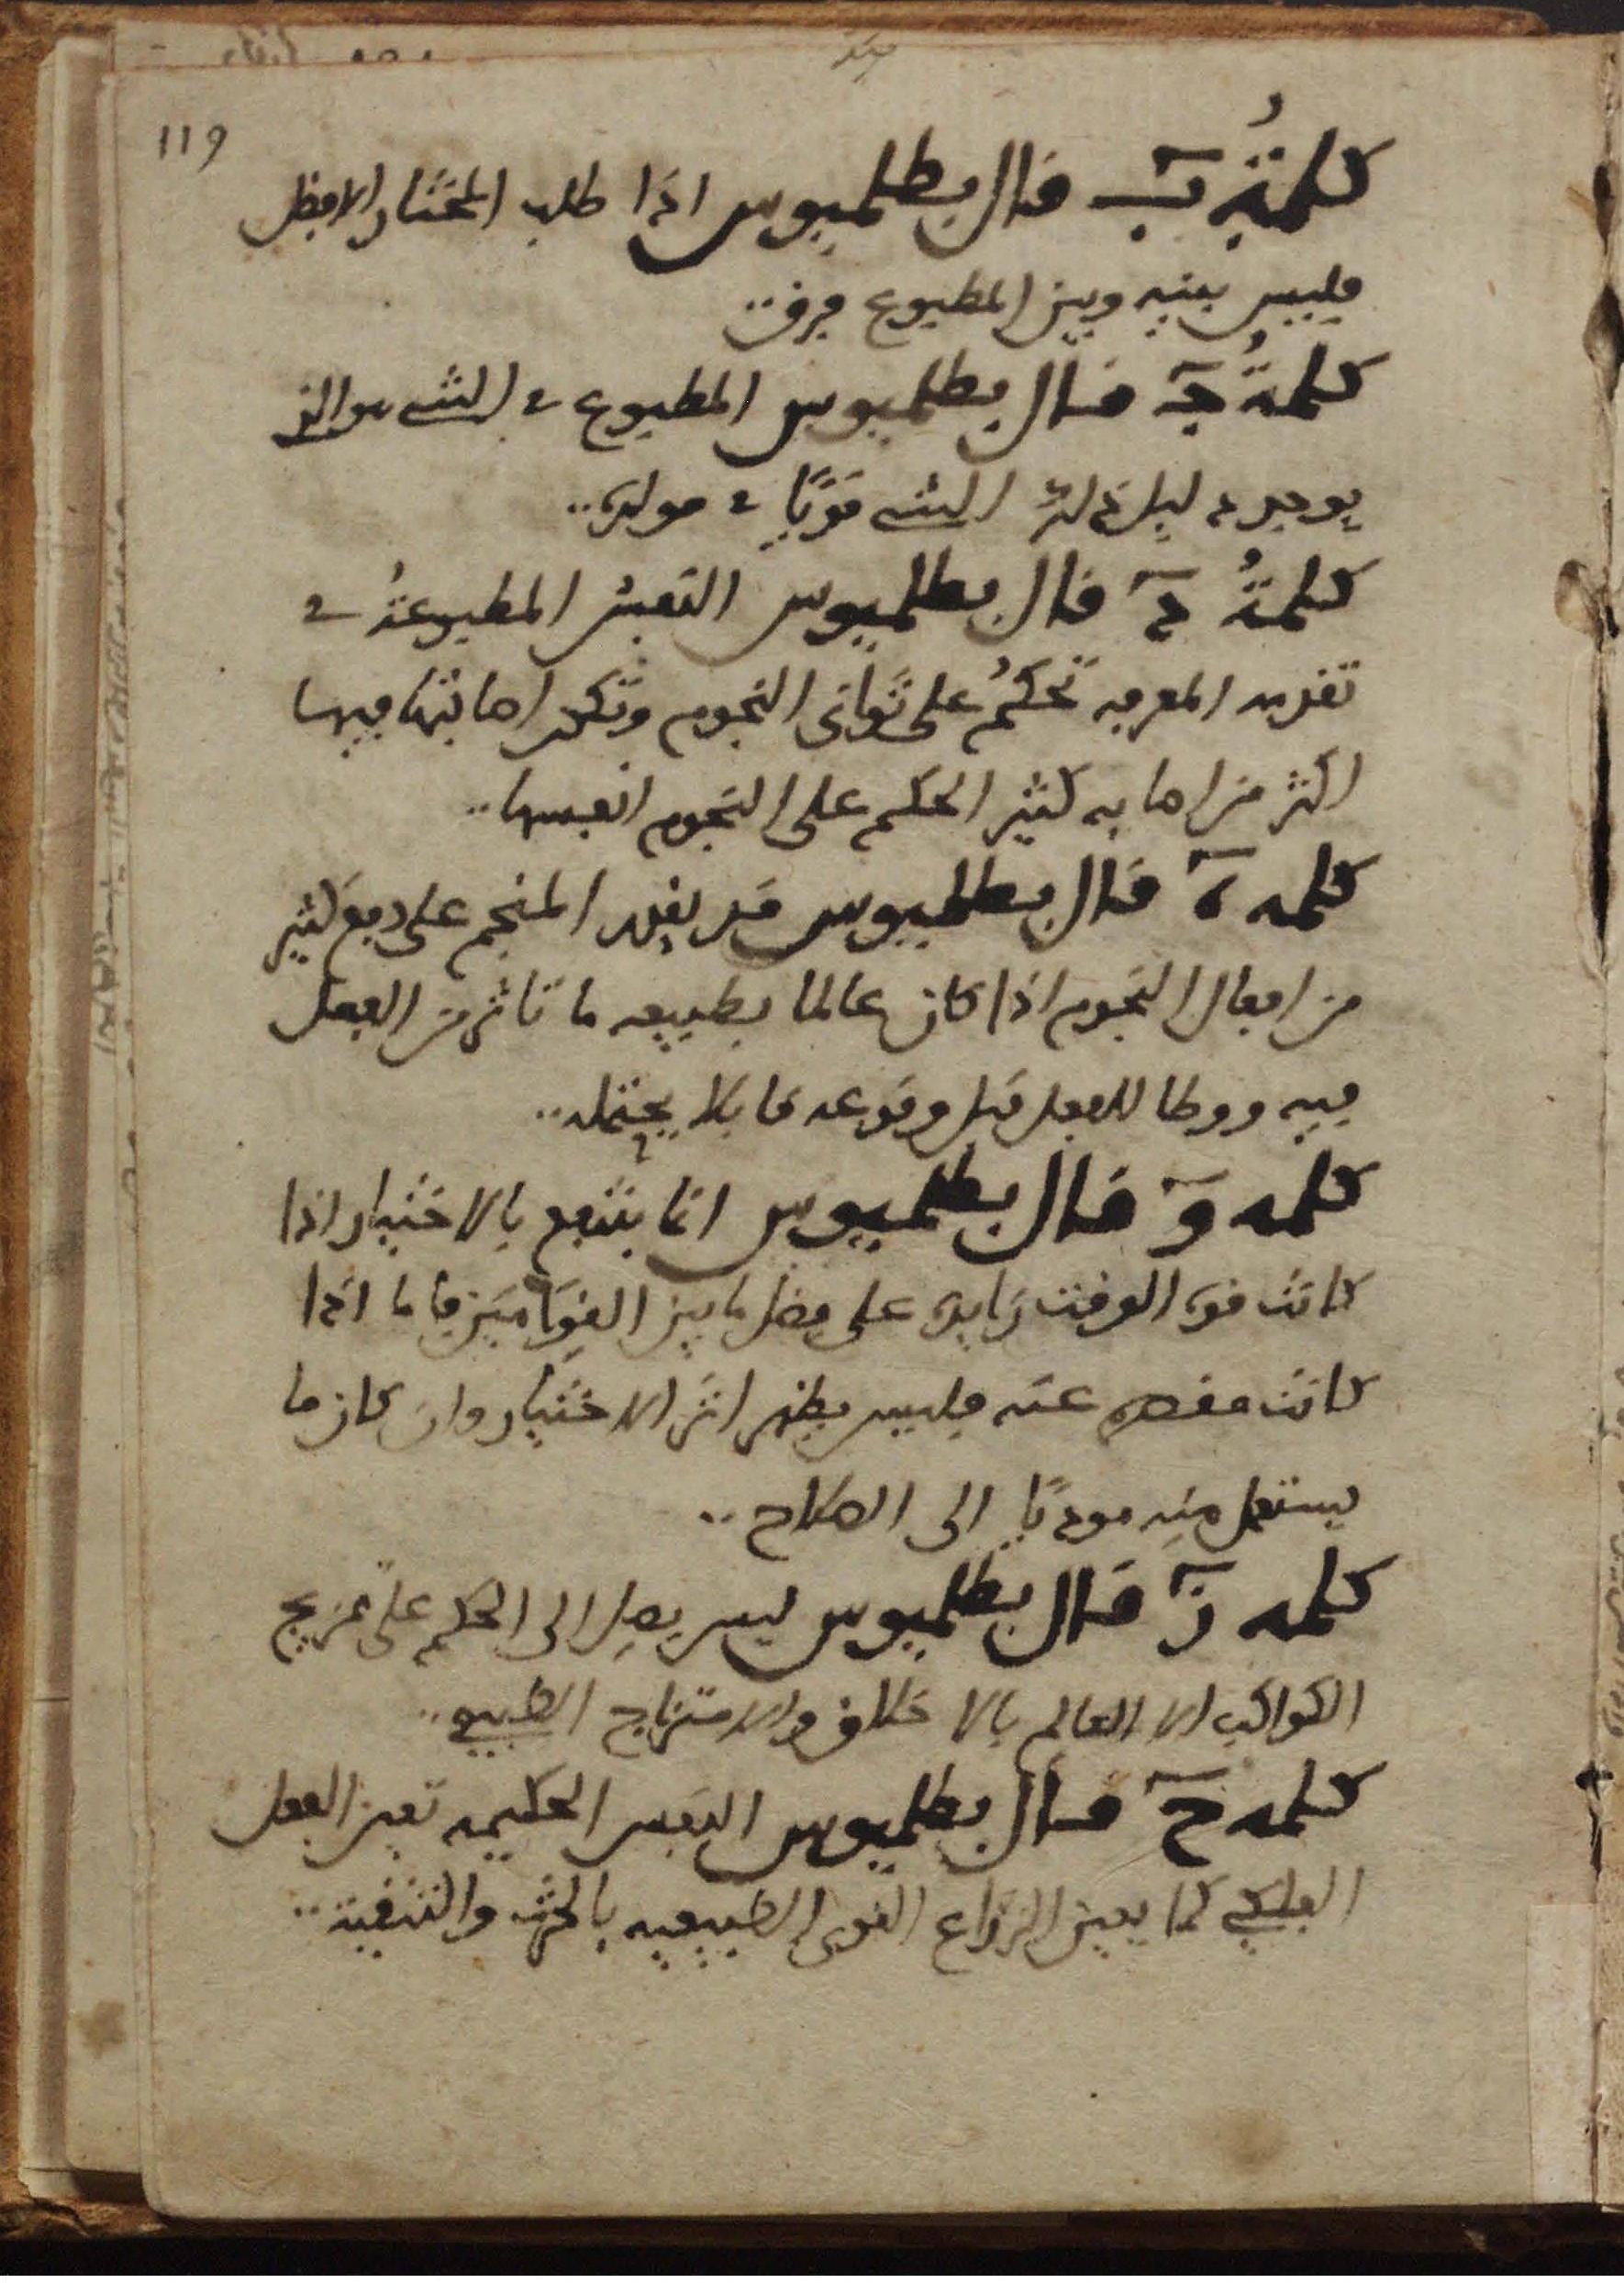 119
كلمةُ ب قال بطلميوس اذا طلب المختار الافضل
فليس بينه وبين المطبوع فرق
كلمةُ ج قال بطلميوس المطبوع في الشي هو الذي
يوجد دليل ذلك الشي قويًا في مولده
كلمةُ د قال بطلميوس النفس المطبوعةُ في
تقدمه المعرفه تحكمُ على ثواني النجوم وتكون اصابتها فيها
اكثر من اصابه كثير الحكم على النجوم انفسها
كلمه ه قال بطلميوس قد يقدر المنجم على دفع كثير
من افعال النجوم اذا كان عالما بطبيعه ما تاثر من الفعل
فيه ووطا للفعل قبل وقوعه قابلا يحتمله
كلمه و قال بطلميوس انما ينتفع بالاختيار اذا
كانت قوى الوقت زايده على فضل ما بين القوامين فاما اذا
كانت مقصره عنه فليس يظهر اثر الاختيار وان كان ما
يستعمل منه موديًا الى الصلاح
كلمه ز قال بطلميوس ليس يصل الى الحكم على تمزيج
الكواكب الا العالم بالاخلاق والامتزاج الطبيعي
كلمه ح قال بطلميوس النفس الحكيمه تعين الفعل
الفلكي كما يعين الزراع القوى الطبيعيه بالحرث والتنقية